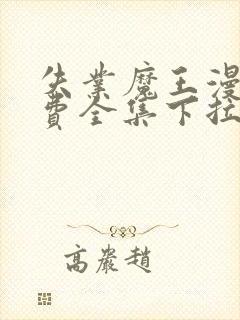 失業魔王漫
費全集下拉
高嚴趙